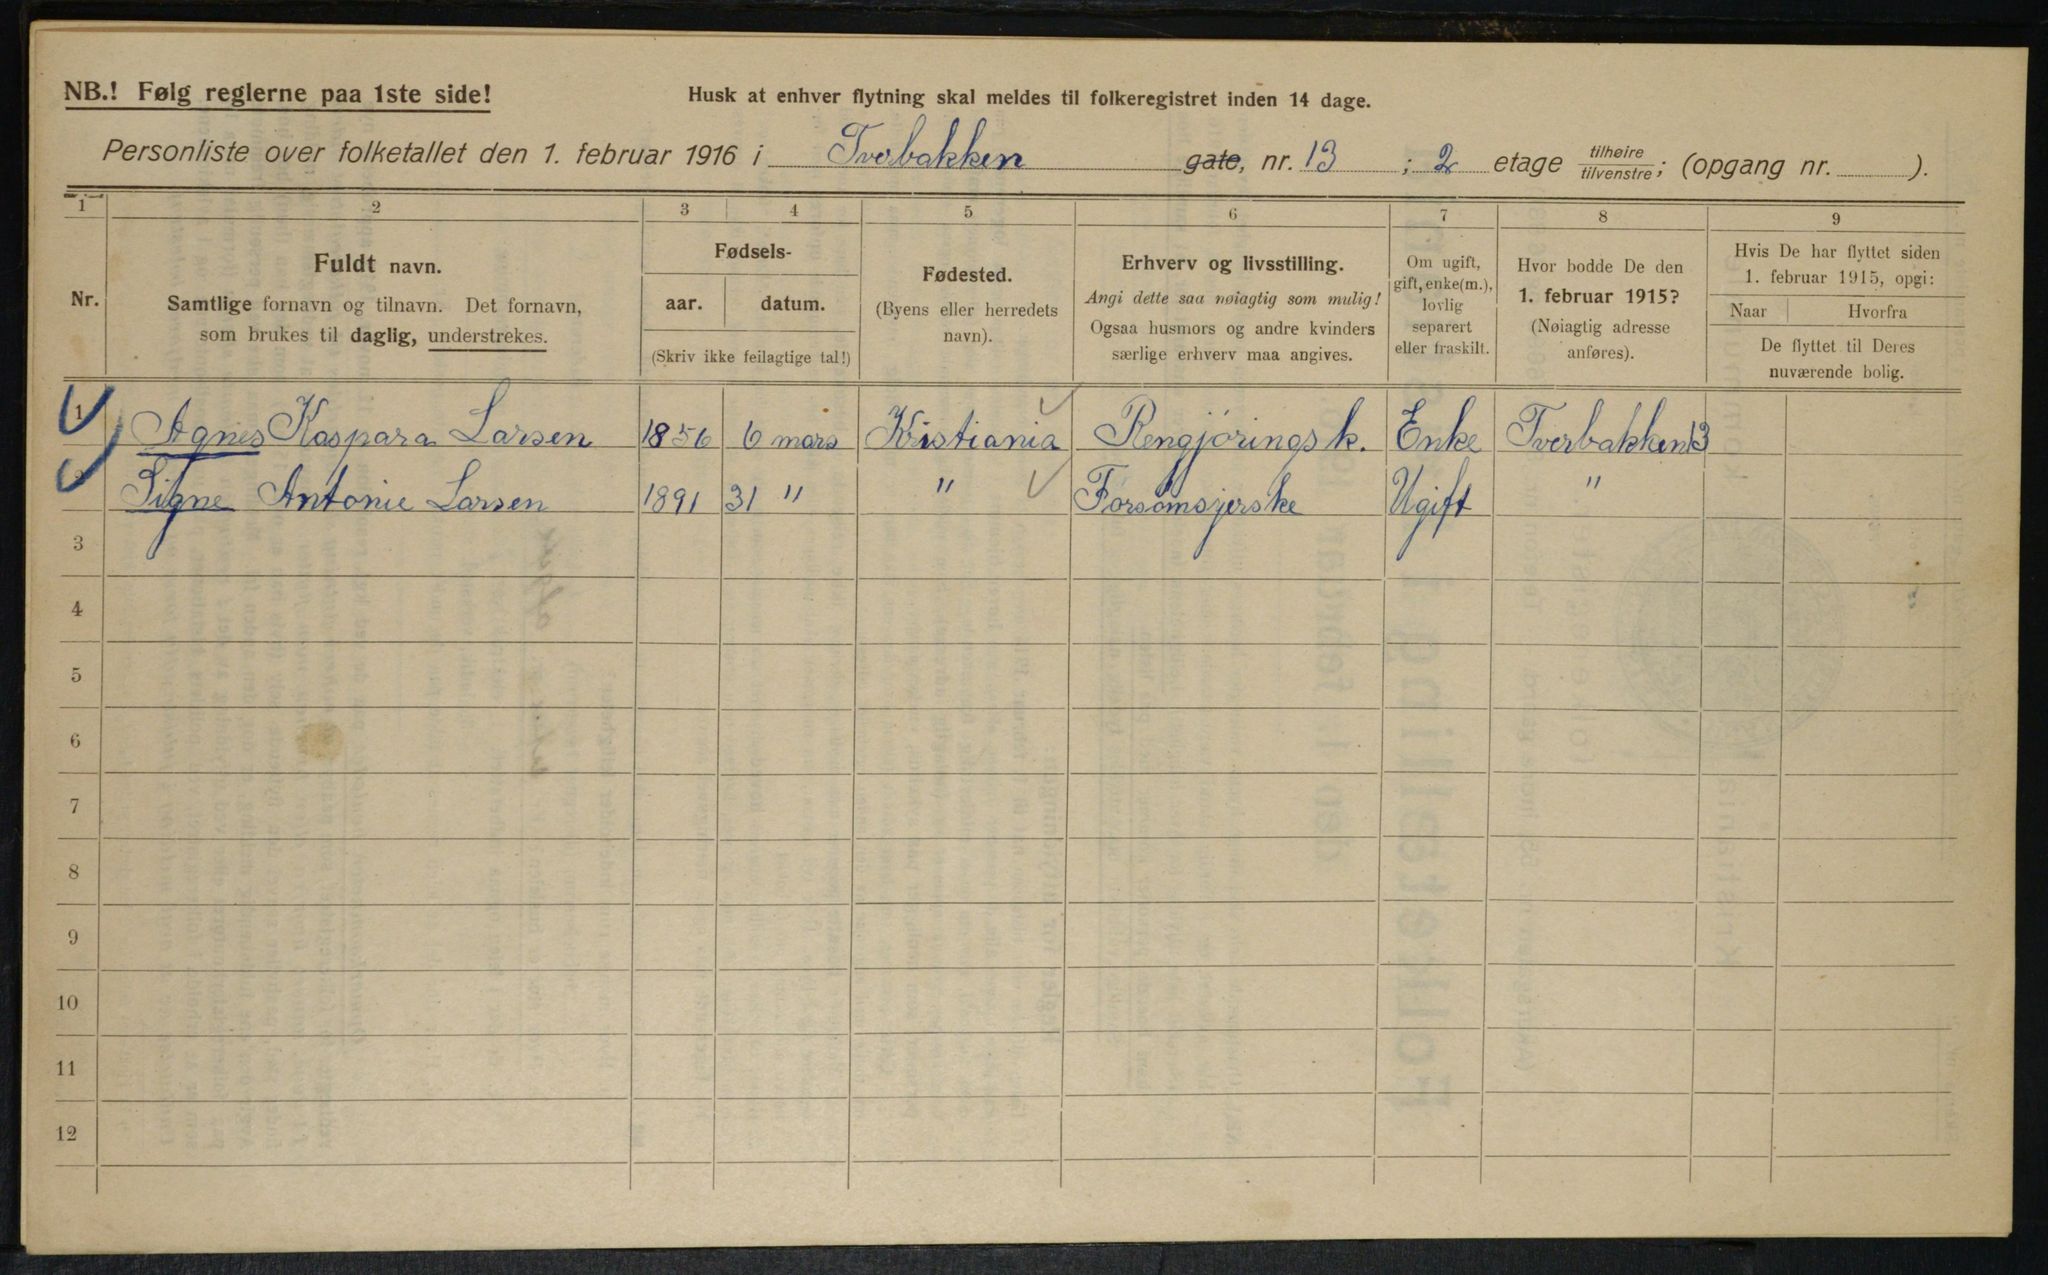 NB.! Følg reglerne paa 1ste side!
Husk at enhver flytning skal meldes til folkeregistret inden 14 dage.
Personliste over folketallet den 1. februar 1916 i Tverbakken gate, nr. 13 ; 2 etage tilhøire tilvenstre; (opgang nr. ).
1 2 3 4 5 6 7 8 9
Nr.
Fuldt navn.
Samtlige fornavn og tilnavn. Det fornavn,
som brukes til daglig, understrekes.
Fødsels-
aar. datum.
(Skriv ikke feilagtige tal!)
Fødested.
(Byens eller herredets
navn).
Erhverv og livsstilling.
Angi dette saa nøiagtig som mulig!
Ogsaa husmors og andre kvinders
særlige erhverv maa angives.
Om ugift,
gift, enke(m.),
lovlig
separert
eller fraskilt.
Hvor bodde De den
1. februar 1915?
(Nøiagtig adresse
anføres).
Hvis De har flyttet siden
1. februar 1915, opgi:
Naar Hvorfra
De flyttet til Deres
nuværende bolig.
1 Agnes Kaspara Larsen 1856 6 mars Kristiania Rengjöringsk. Enke Tverbakken 13
2 Signe Antonie Larsen 1891 31 " " Forsömsjerske Ugift "
3
4
5
6
7
8
9
10
11
12